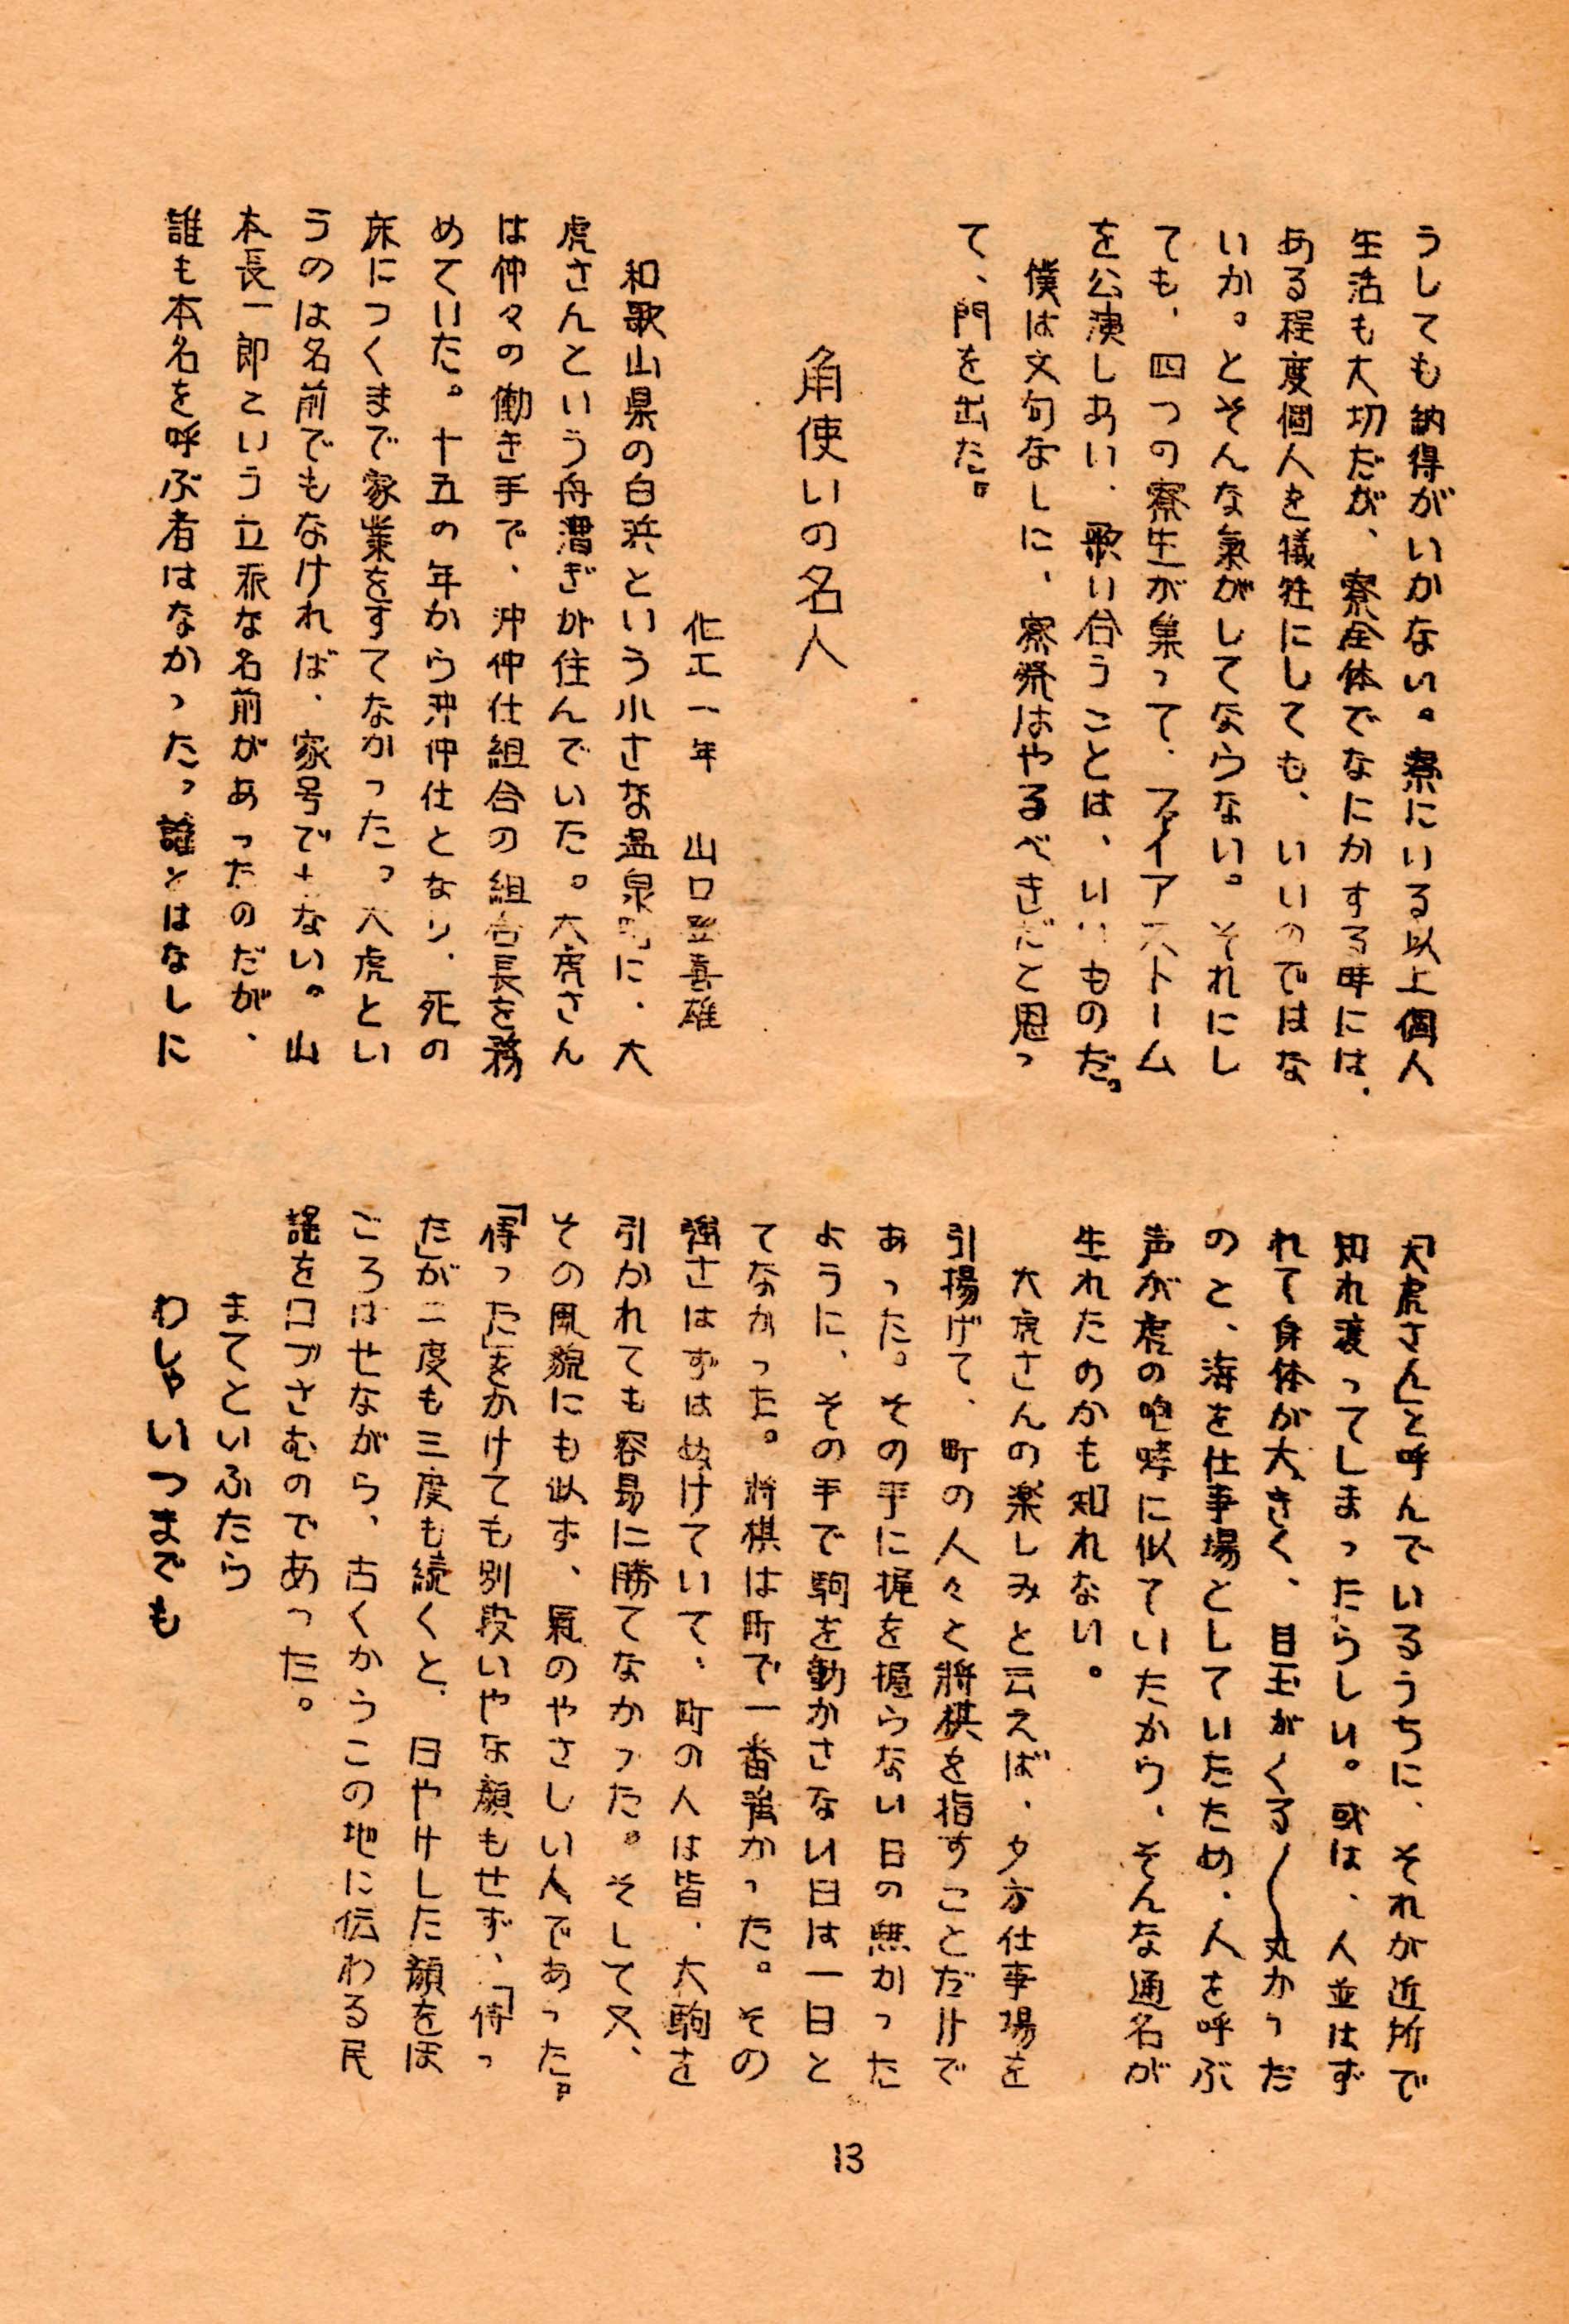 うしても納得がいかない。寮にいる以上個人
生活も大切だが、寮全体でなにかする時には、
ある程度個人を犠牲にしても、いいのではな
いか。とそんな氣がしてならない。それにし
ても、四つの寮生が集って、ファイアストーム
を公演しあい、歌い合うことは、いいものだ。
僕は文句なしに、寮祭はやるべきだと思っ
て、門を出た。
角使いの名人
化工一年　山口登喜雄
和歌山県の白浜という小さな温泉町に、大
虎さんという舟漕ぎが住んでいた。大虎さん
は仲々の働き手で、沖仲仕組合の組合長を務
めていた。十五の年から沖仲仕となり、死の
床につくまで家業をすてなかった。大虎とい
うのは名前でもなければ、家号でもない。山
本長一郎という立派な名前があったのだが、
誰も本名を呼ぶ者はなかった。誰とはなしに
「大虎さん」と呼んでいるうちに、それが近所で
知れ渡ってしまったらしい。或は、人並はず
れて身体が大きく、目玉がくる〱丸かった
のと、海を仕事場としていたため、人を呼ぶ
声が虎の咆哮に似ていたから、そんな通名が
生れたのかも知れない。
大虎さんの楽しみと云えば、夕方仕事場を
引揚げて、町の人々と將棋を指すことだけで
あった。その手に梶を握らない日の無かった
ように、その手で駒を動かさない日は一日と
てなかった。將棋は町で一番強かった。その
強さはずはぬけていて、町の人は皆、大駒を
引かれても容易に勝てなかった。そして又、
その風貌にも似ず、氣のやさしい人であった。
「待った」をかけても別段いやな顔もせず、「待っ
た」が二度も三度も続くと、日やけした顔をほ
ころばせながら、古くからこの地に伝わる民
謡を口ブさむのであった。
まてといふたら
わしゃいつまでも
13